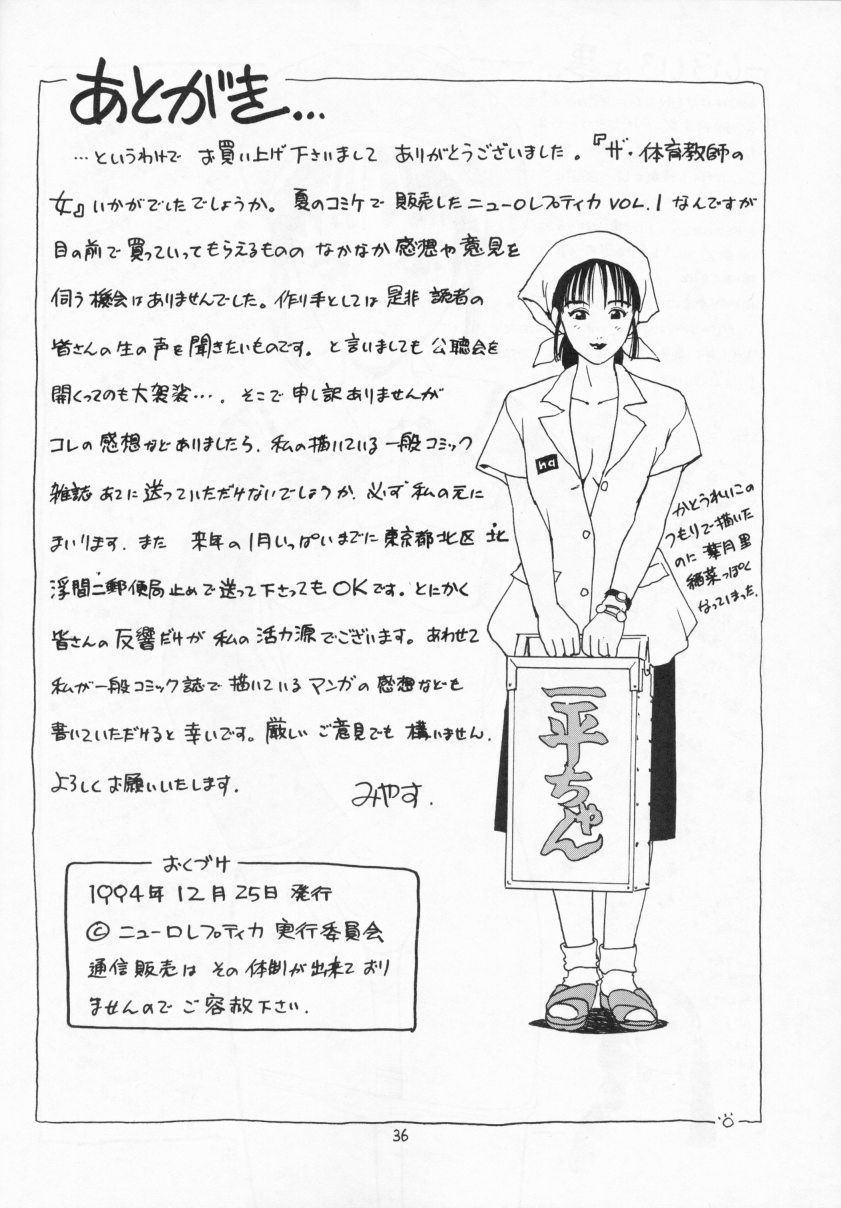 あとがき…
…というわけで お買い上げ下さいまして ありがとうございました。『ザ・体育教師の
女』いかがでしたでしょうか。夏のコミケで 販売したニューロレプティカ VOL.1 なんですが
目の前で 買っていってもらえるものの なかなか 感想や意見を
伺う機会はありませんでした。作り手としては 是非 読者の
皆さんの生の声を聞きたいものです。と言いましても 公聴会を
開くってのも大袈裟…。そこで 申し訳ありませんが
コレの 感想などありましたら、私の描いている 一般コミック
雑誌 あてに 送っていただけないでしょうか。必ず 私の元に
まいります。また 来年の1月いっぱいまでに 東京都北区 北
浮間二郵便局止めで 送って下さっても OKです。とにかく
皆さんの 反響だけが 私の 活力源でございます。あわせて
私が一般コミック誌で 描いている マンガの 感想なども
書いていただけると 幸いです。厳しい ご意見でも 構いません。
よろしく お願いいたします。
みやす.
かとうれいこの
つもりで描いた
のに 葉月里
緒菜っぽく
なってしまった.
na
一平ちゃん
おくづけ
1994年 12月 25日 発行
© ニューロレプティカ 実行委員会
通信販売は その 体制が出来ており
ませんので ご容赦下さい.
36